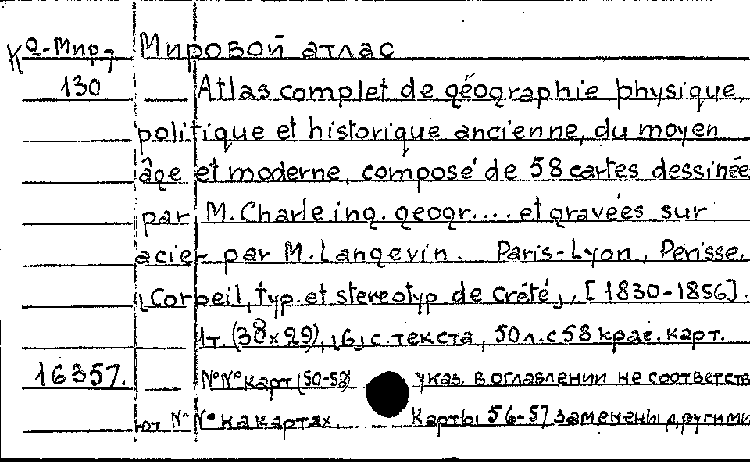 К Q-Мир 7 Мировой атлас
130 Atlas complet de géographie physique,
politique et historique ancienne, du moyen
âge et moderne, composé de 58 cartes dessinée
par M. Charle ing. geogr.... et gravées sur
acier par M. Langevin. Paris-Lyon, Perisse,
(Corbeil, typ. et stereotyp de Crété), [1830-1856].
1т. (38x29), (6) с. текста, 50 л. с 58 крас. карт.
16357. №№ карт (50-52) указ. в оглавлении не соответств
от №№ на картах. Карты 56-57 заменены другими